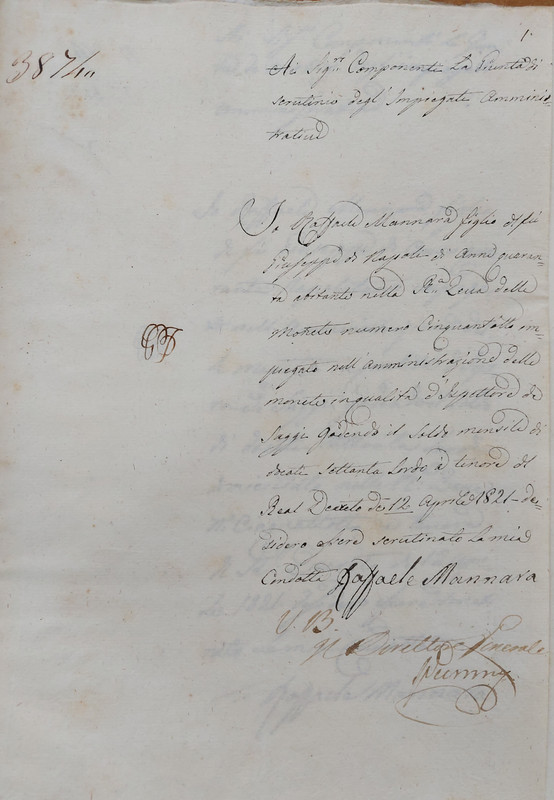 1.
3874
Ai Sig.ri Componenti La Giunta di
scrutinio degl'Impiegati Amminis=
trativi
Io Raffaele Mannara figlio del fù
Giuseppe di Napoli di Anni quaran=
ta abitante nella R.a Zecca delle
Monete numero Cinquantotto im=
piegato nell'Amministrazione delle
monete in qualità d'Ispettore de
Saggi Godendo il Soldo mensile di
docati settanta lordi, a tenore del
Real Decreto de 12 Aprile 1821- de=
sidero essere scrutinato la mia
Condotta Raffaele Mannara
V. B.
Il Direttore Generale